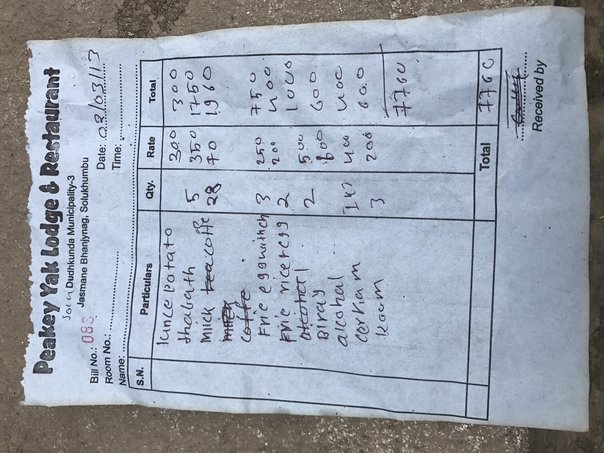 Peakey Yak Lodge & Restaurant
Solu Dudhkunda Municipality-3
Jasmane Bhanjynag, Solukhumbu
Bill No.: 083 Date: 02/03/13
Room No.: Time:
Name:
S.N. Particulars Qty. Rate Total
lunce potato 300 300
thabath 5 350 1750
Milk tea coffe 28 70 1960
coffe
Frie egg with ch 3 250 750
Frie rice egg 2 200 400
2 500 1000
Biray 600 600
alcohal 400 400
corham
Room 3 200 600
7760
Total 7760
Received by